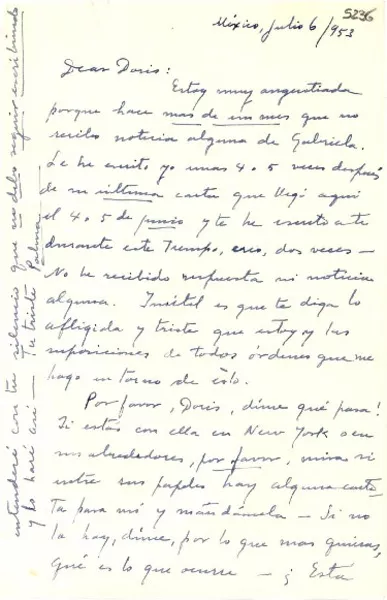 5236
México, Julio 6/953
Dear Doris:
Estoy muy angustiada
porque hace mas de un mes que no
recibo noticia alguna de Gabriela.
Le he escrito yo unas 4 o 5 veces después
de su última carta que llegó aquí
el 4 o 5 de junio y te he escrito a ti
durante este tiempo, creo, dos veces —
No he recibido respuesta ni noticia
alguna. Inútil es que te diga lo
afligida y triste que estoy y las
suposiciones de todos órdenes que me
hago en torno de ésto.
Por favor, Doris, dime qué pasa!
Si estás con ella en New York o en
sus alrededores, por favor, mira si
entre sus papeles hay alguna carti-
ta para mí y mándamela — Si no
la hay, dime, por lo que mas quieras,
Qué es lo que ocurre — ¿ Está
entenderé con tu silencio que no debo seguir escribiendo
y lo haré así — Tu triste Palma